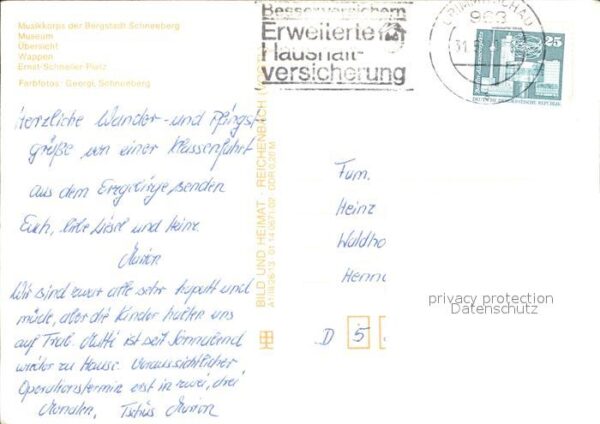 Musikkorps der Bergstadt Schneeberg
Museum
Übersicht
Wappen
Ernst-Schneller-Platz
Farbfotos: Georgi, Schneeberg
Besserversichern
Erweiterte
Haushalt-
versicherung
CRIMMITSCHAU
963
25
DEUTSCHE DEMOKRATISCHE REPUBLIK
Herzliche Wander- und Pfingst-
grüße von einer Klassenfahrt
aus dem Erzgebirge senden
Euch, liebe Liesel und Heinz
Marion
Wir sind zwar alle sehr kaputt und
müde, aber die Kinder halten uns
auf Trab. Mutti ist seit Sonnabend
wieder zu Hause. Voraussichtlicher
Operationstermin erst in zwei, drei
Monaten. Tschüs Marion
BILD UND HEIMAT · REICHENBACH
A1/III/26/13 01 14 0671/02 · DDR 0,20 M
Fam.
Heinz
Waldho
Henne
D 5
privacy protection
Datenschutz